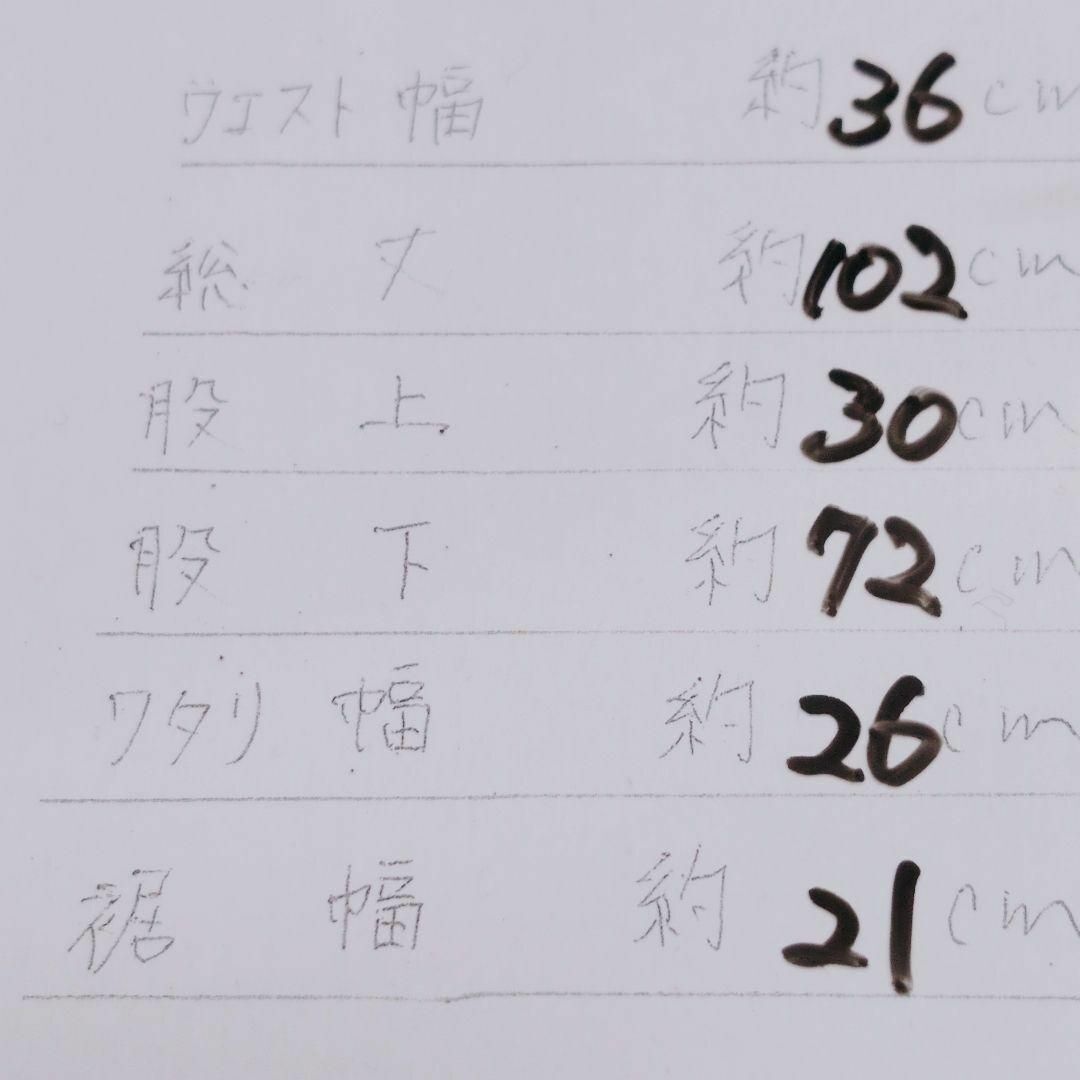 ウエスト幅 約36cm
総丈 約102cm
股上 約30cm
股下 約72cm
ワタリ幅 約26cm
裾幅 約21cm